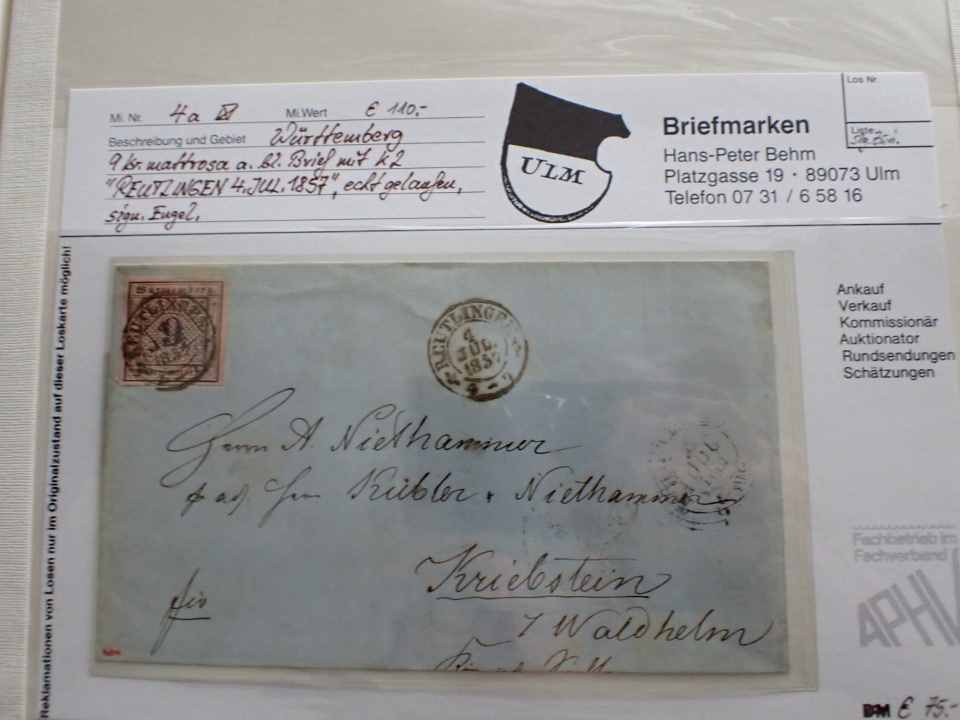 Mi. Nr. 4a Mi.Wert € 110.-
Beschreibung und Gebiet Württemberg
9 kr. mattrosa a. bl. Brief mit K2
"REUTLINGEN 4. JUL. 1857", echt gelaufen,
sign. Engel.
ULM
Briefmarken
Hans-Peter Behm
Platzgasse 19 · 89073 Ulm
Telefon 07 31 / 6 58 16
Los Nr.
Liste
Reklamationen von Losen nur im Originalzustand auf dieser Loskarte möglich!
Ankauf
Verkauf
Kommissionär
Auktionator
Rundsendungen
Schätzungen
9
REUTLINGEN
4
JUL.
1857
Herrn A Niethammer
Kübler & Niethammer
Kriebstein
Waldheim
Fachbetrieb im
Fachverband
APHV
€ 75.-